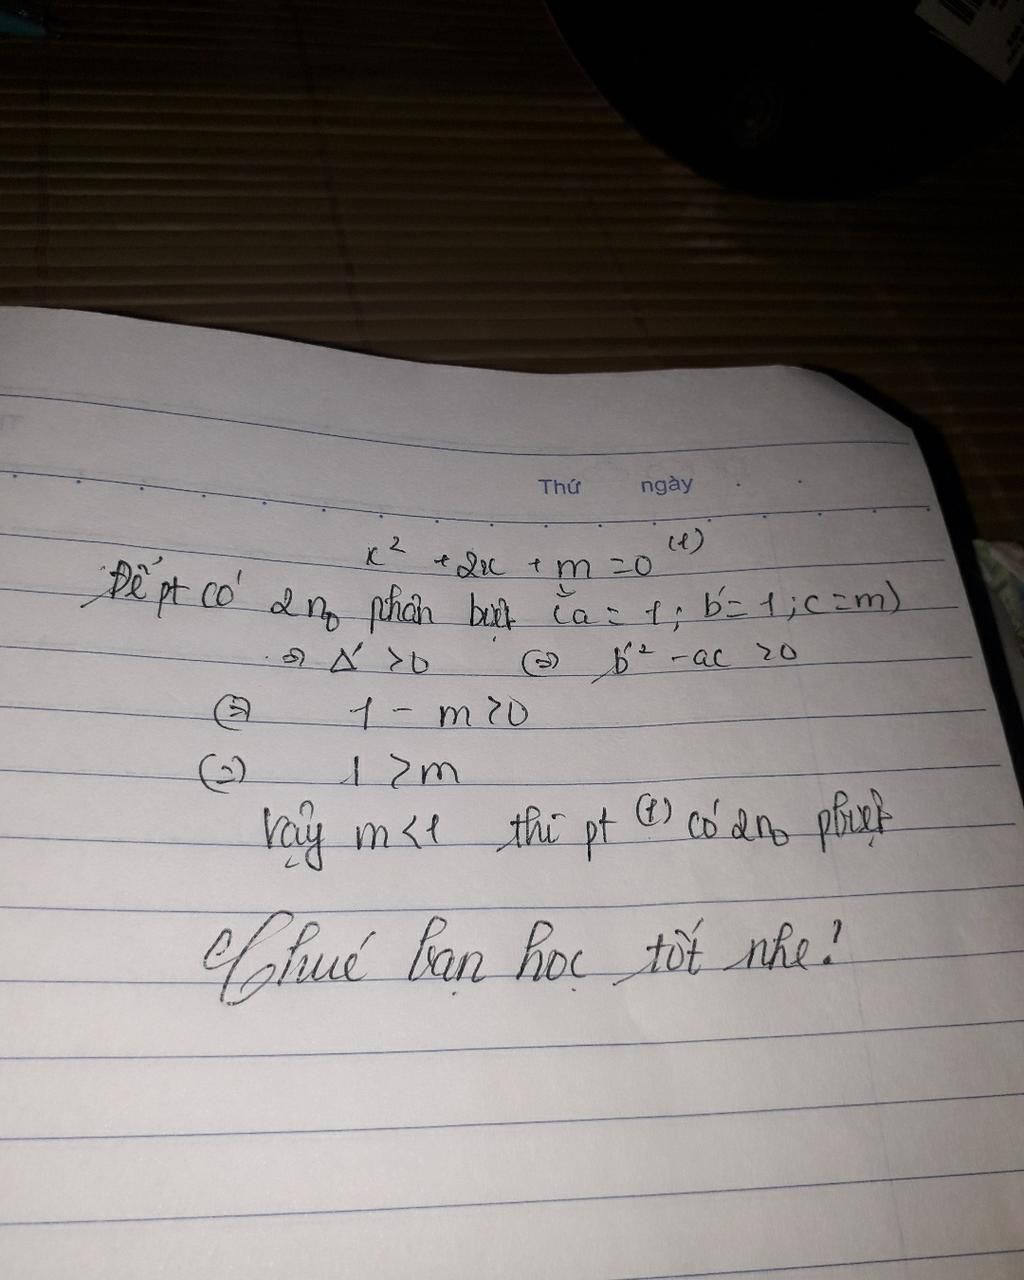 Thứ ngày
x² + 2x + m = 0 (1)
Để pt có 2 n₀ phân biệt (a = 1; b' = 1; c = m)
=> Δ' > 0 <=> b'² - ac > 0
<=> 1 - m > 0
<=> 1 > m
Vậy m < 1 thì pt (1) có 2 n₀ pbiệt
Chúc bạn học tốt nhe!